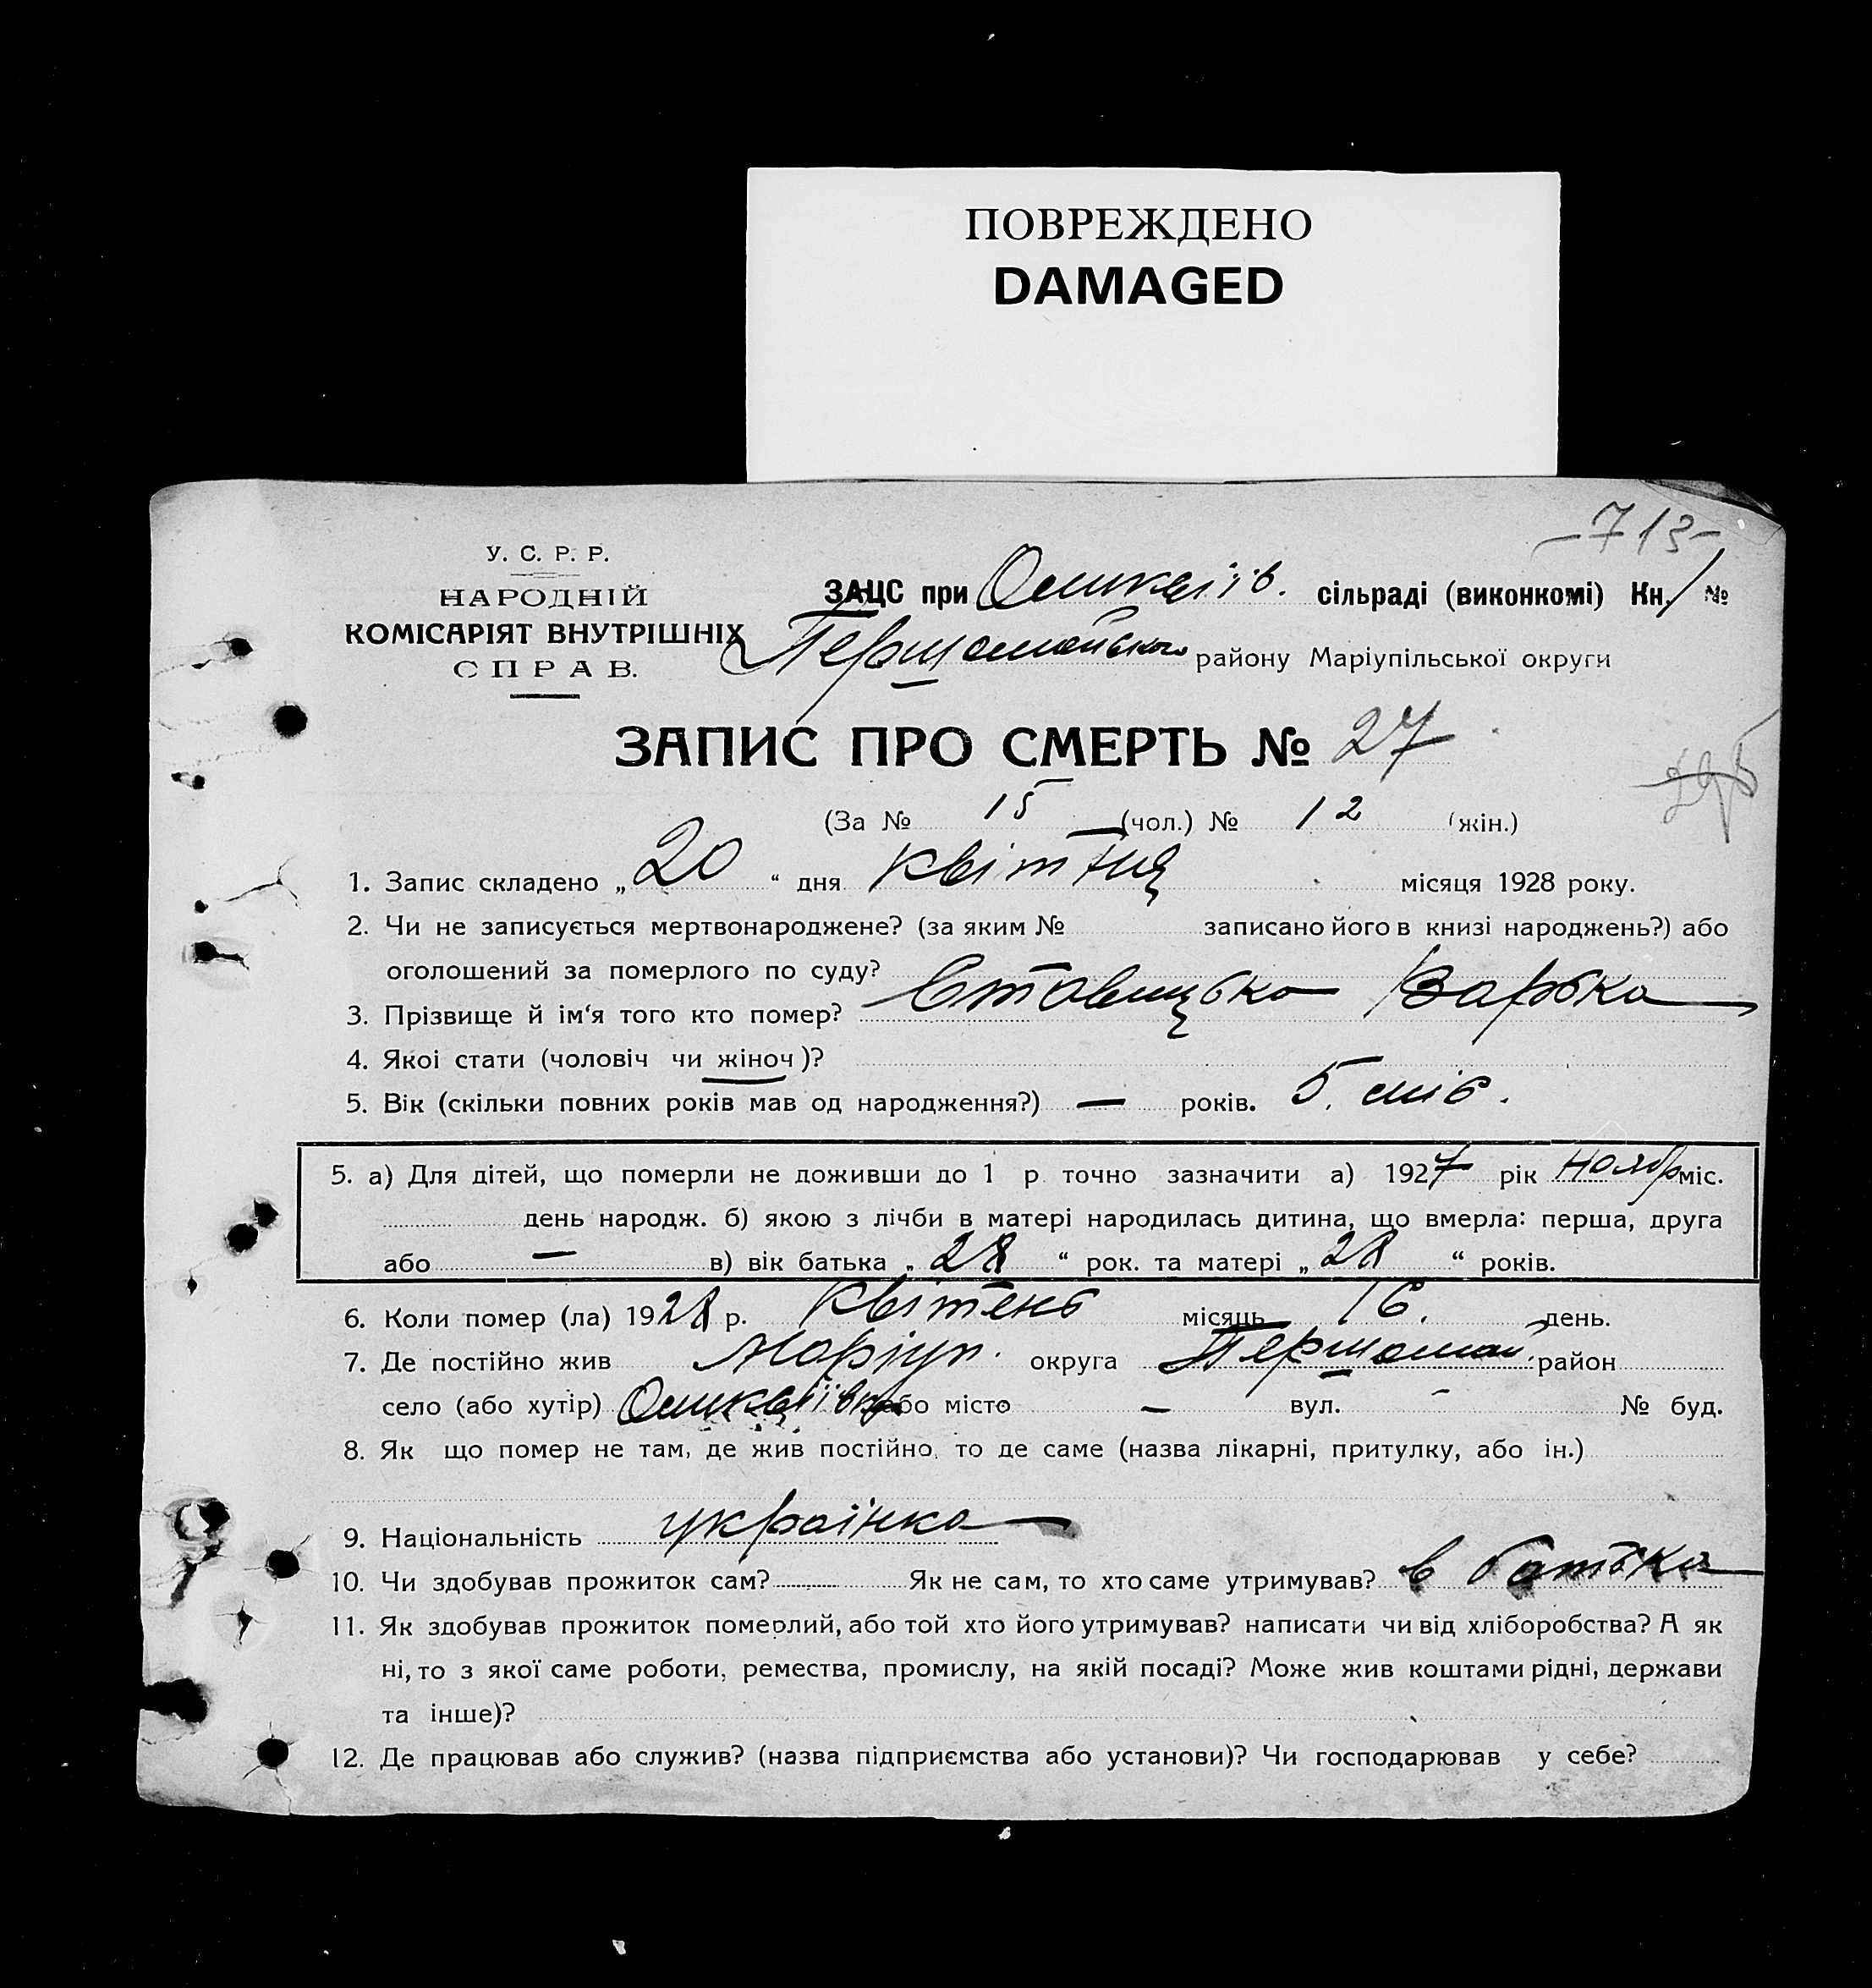 ПОВРЕЖДЕНО
DAMAGED
-713-
У. С. Р. Р.
НАРОДНІЙ
КОМІСАРІЯТ ВНУТРІШНІХ
СПРАВ.
ЗАЦС при сільраді (виконкомі) Кн. 1 №
Першомайського району Маріупільської округи
ЗАПИС ПРО СМЕРТЬ № 27
(За № 15 (чол.) № 12 (жін.)
1. Запис складено „ 20 “ дня квітня місяця 1928 року.
2. Чи не записується мертвонароджене? (за яким № записано його в книзі народжень?) або
оголошений за померлого по суду?
3. Прізвище й ім‘я того кто помер? Ставицька Варька
4. Якоі стати (чоловіч чи жіноч)?
5. Вік (скільки повних років мав од народження?) — років. 5. міс.
5. а) Для дітей, що померли не доживши до 1 р точно зазначити а) 1927 рік Ноябр міс.
день народж. б) якою з лічби в матері народилась дитина, що вмерла: перша, друга
або — в) вік батька „ 28 “ рок. та матері „ 28 “ років.
6. Коли помер (ла) 1928 р. Квітень місяць 16. день.
7. Де постійно жив Маріуп. округа Першомай. район
село (або хутір) або місто — вул. — № буд.
8. Як що помер не там, де жив постійно, то де саме (назва лікарні, притулку, або ін.)
9. Національність українка
10. Чи здобував прожиток сам? Як не сам, то хто саме утримував? в батька
11. Як здобував прожиток померлий, або той хто його утримував? написати чи від хліборобства? А як
ні, то з якої саме роботи, ремества, промислу, на якій посаді? Може жив коштами рідні, держави
та інше)?
12. Де працював або служив? (назва підприємства або установи)? Чи господарював у себе?